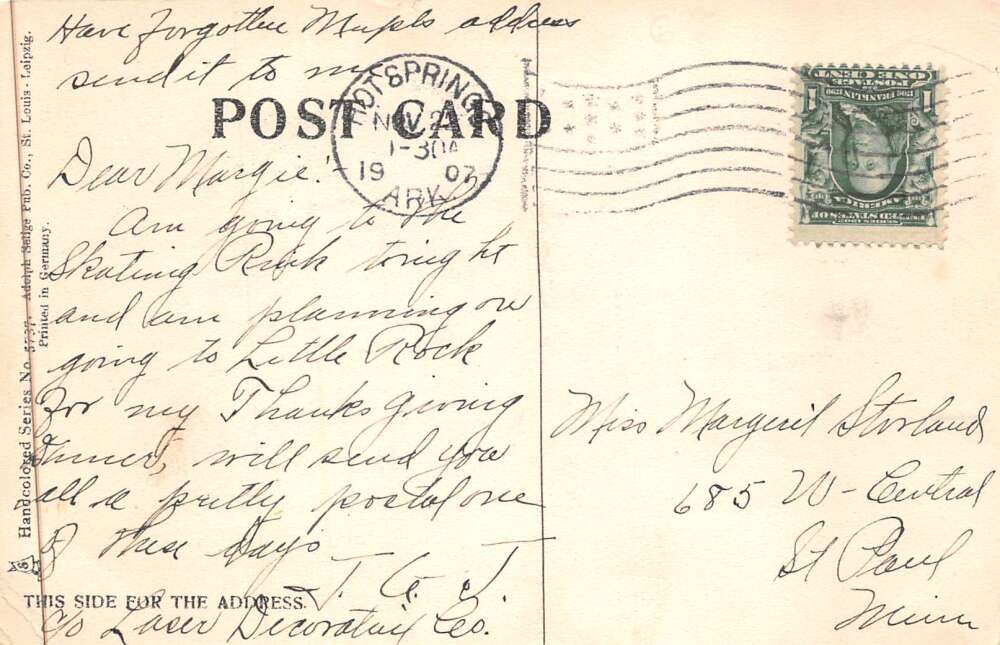 Have forgotten Mupls address
send it to me
POST CARD
HOT SPRINGS
NOV 2
1-30A
1907
ARK.
Dear Margie!
Am going to the
Skating Rink tonight
and am planning on
going to Little Rock
for my Thanks giving
Dinner, will send you
all a pretty postal one
of these days
J. C. J.
c/o Laser Decorating Co.
THIS SIDE FOR THE ADDRESS.
Handcolored Series No. 3737. Adolph Selige Pub. Co., St. Louis - Leipzig.
Printed in Germany.
SERIES 1902
UNITED STATES OF
AMERICA
1706 FRANKLIN 1790
POSTAGE
1 ONE CENT 1
Miss Margeril Storland
685 W - Central
St Paul
Minn